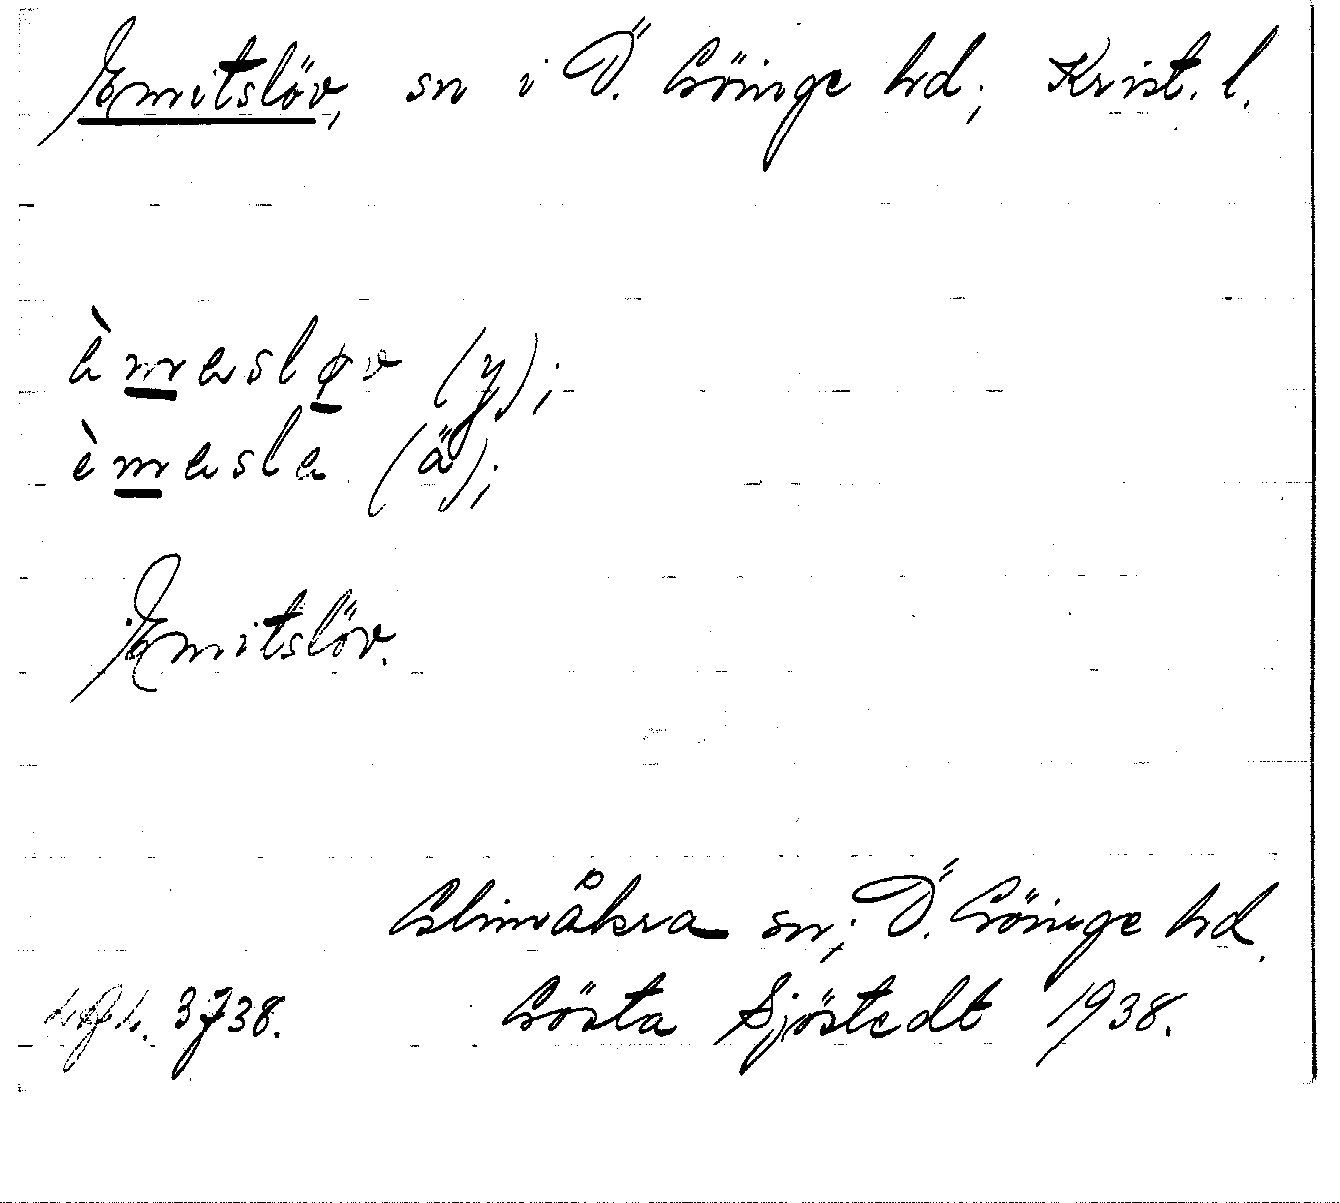 Emitslöv, sn i Ö. Göinge hd, Krist. l.
èmasløv (y);
èmasla (ä);
Emitslöv.
Glimåkra sn, Ö. Göinge hd.
3738. Gösta Sjöstedt 1938.